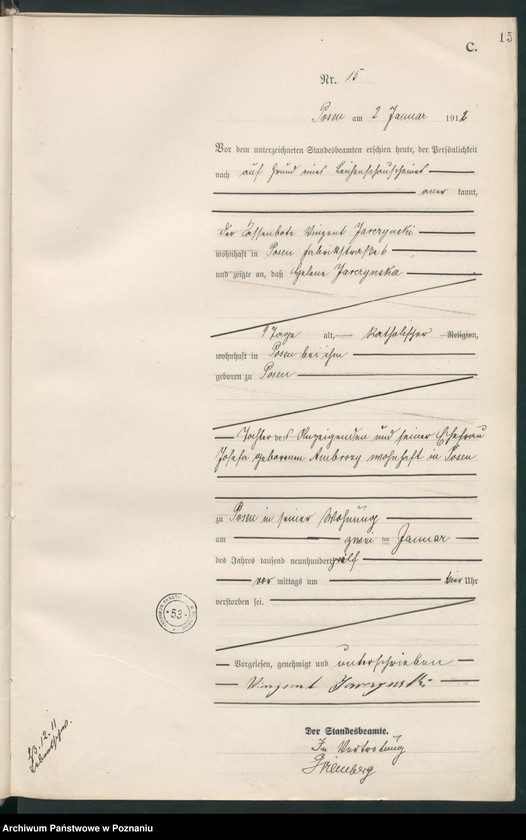 15
C.
Nr. 15
Posen am 2 Januar 1912
Vor dem unterzeichneten Standesbeamten erschien heute, der Persönlichkeit
nach auf Grund eines Leichenschauscheines
aner kannt,
der Kassenbote Vinzent Jarczynski
wohnhaft in Posen Fabrikstraße 6
und zeigte an, daß Helene Jarczynska
9 Tage alt, katholischer Religion,
wohnhaft in Posen bei ihm
geboren zu Posen
Tochter des Anzeigenden und seiner Ehefrau
Josefa geborenen Ambrozy wohnhaft in Posen
zu Posen in seiner Wohnung
am zwei ten Januar
des Jahres tausend neunhundert zwölf
vor mittags um vier Uhr
verstorben sei.
53
Vorgelesen, genehmigt und unterschrieben
Vinzent Jarczynski
Der Standesbeamte.
In Vertretung
23.12.11
Archiwum Państwowe w Poznaniu